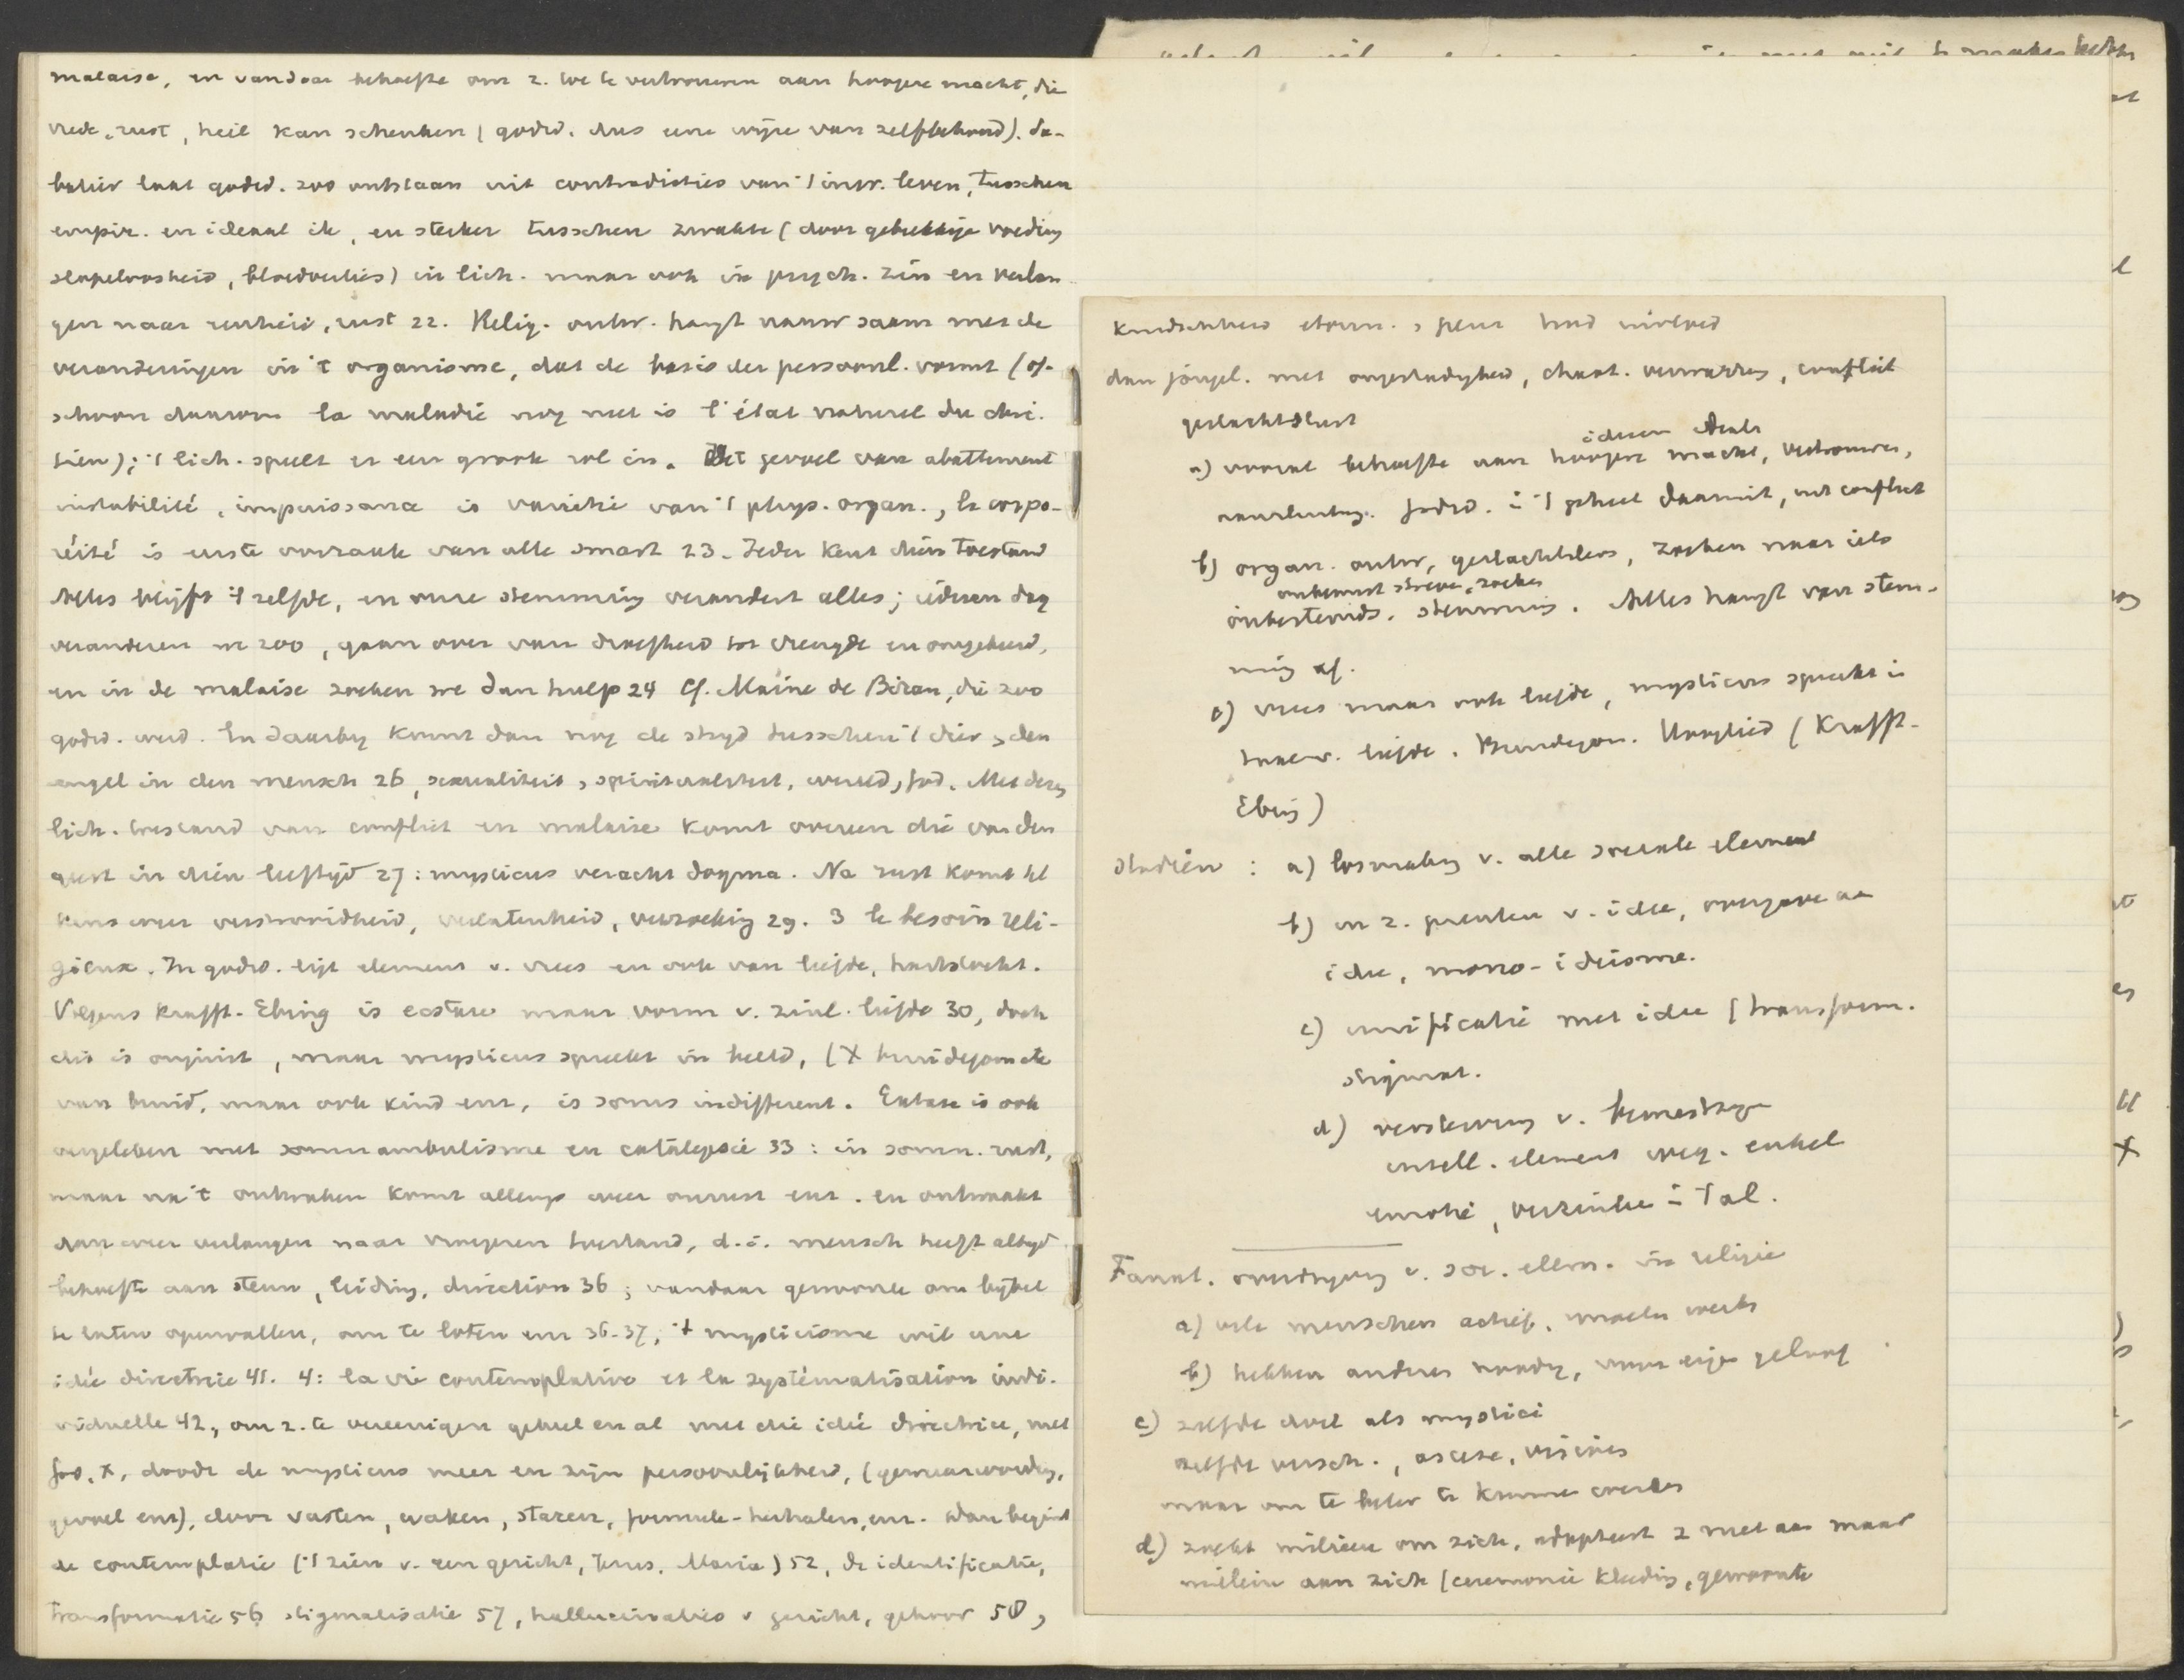 malaise, en vandaar behoefte om z. toe te vertrouwen aan hoogere macht, die
vrede, rust, heil kan schenken (godsd. dus eene wijze van zelfbehoud). Sa-
batier laat godsd. zoo ontstaan uit contradicties van 't inw. leven, tusschen
empir. en ideaal ik, en sterker tusschen zwakte (door gebrekkige voeding
slapeloosheid, bloedverlies) in lich. maar ook in psych. zin en verlan-
gen naar eenheid, rust 22. Relig. ontw. hangt nauw saam met de
veranderingen in 't organisme, dat de basis der persoonl. vormt (of-
schoon daarom la maladie nog niet is l'état naturel du chré-
tien); 't lich. speelt er een groote rol in. Het gevoel van abattement
instabilité, impuissance is variatie van 't phys. organ., la corpo-
réité is eerste oorzaak van alle smart 23. Ieder kent dien toestand
Alles blijft 't zelfde, en onze stemming verandert alles; iederen dag
veranderen we zoo, gaan over van droefheid tot vreugde en omgekeerd,
en in de malaise zoeken we dan hulp 24 Cf. Maine de Biran, die zoo
godsd. werd. En daarbij komt dan nog de strijd tusschen 't dier en den
engel in den mensch 26, sexualiteit, spiritualiteit, wereld, God. Met dezen
lich. toestand van conflict en malaise komt overeen die van den
geest in dien leeftijd 27: mysticus veracht dogma. Na rust komt tel
kens weer vermoeidheid, verlatenheid, verzoeking 29. 3 le besoin reli-
gieux. In godsd. ligt element v. vrees en ook van liefde, hartstocht.
Volgens Krafft-Ebing is extase maar vorm v. zinl. liefde 30, doch
dit is onjuist, maar mysticus spreekt in beeld, (X bruidegom etc
van bruid, maar ook kind enz, is soms indifferent. Extase is ook
vergeleken met somnambulisme en catalepsie 33: in somn. rust,
maar na 't ontwaken komt allengs weer onrust enz. en ontwaakt
dan weer verlangen naar vroegeren toestand, d.i. mensch heeft altijd
behoefte aan steun, leiding, direction 36; vandaar gewoonte om bijbel
te laten openvallen, om te loten enz 36-37, 't mysticisme wil eene
idée directrice 41. 4: la vie contemplative et la systématisation indi-
viduelle 42, om z. te vereenigen geheel en al met die idée directrice, met
God, X, doodt de mysticus meer en zijn persoonlijkheid, (gewaarwording,
gevoel enz), door vasten, waken, staren, formule-herhalen, enz. Dan begint
de contemplatie ('t zien v. een gezicht, Jezus, Maria) 52, de identificatie,
transformatie 56 stigmatisatie 57, hallucinaties v gezicht, gehoor 58,
dan jongel. met ongestadigheid, chaot. verwarring, conflict
geslachtslust
ideeen ideals
a) vooral behoefte aan hoogere macht, vertrouwen,
aanleuning. Godsd. is 't geheel daaruit, uit conflict
b) organ. ontw, geslachtsleven, zoeken naar iets
onbewust streven, zoeken
onbestemds. stemming. Alles hangt van stem-
ming af.
c) vrees maar ook liefde, mysticus spreekt in
taal v. liefde. Bruidegom. Hooglied (Krafft-
Ebing)
Stadiën: a) losmaking v. alle sociale element
b) in z. prenten v. idee, overgave aan
idee, mono-ideisme.
c) unificatie met idee (transform.
stigmat.
d) versterving v.
intell. element weg. enkel
emotie, verzinken in 't al.
Fanat. overdrijving v. soc. elem. in religie
a) vele menschen actief,
b) hebben anderen noodig, voor eigen geloof
c) zelfde doel als mystici
zelfde versch., ascese, visioenen
maar om te beter te kunnen werken
d) zoekt milieu om zich, adapteert z niet aan maar
milieu aan zich (ceremonie kleeding, gewoonte